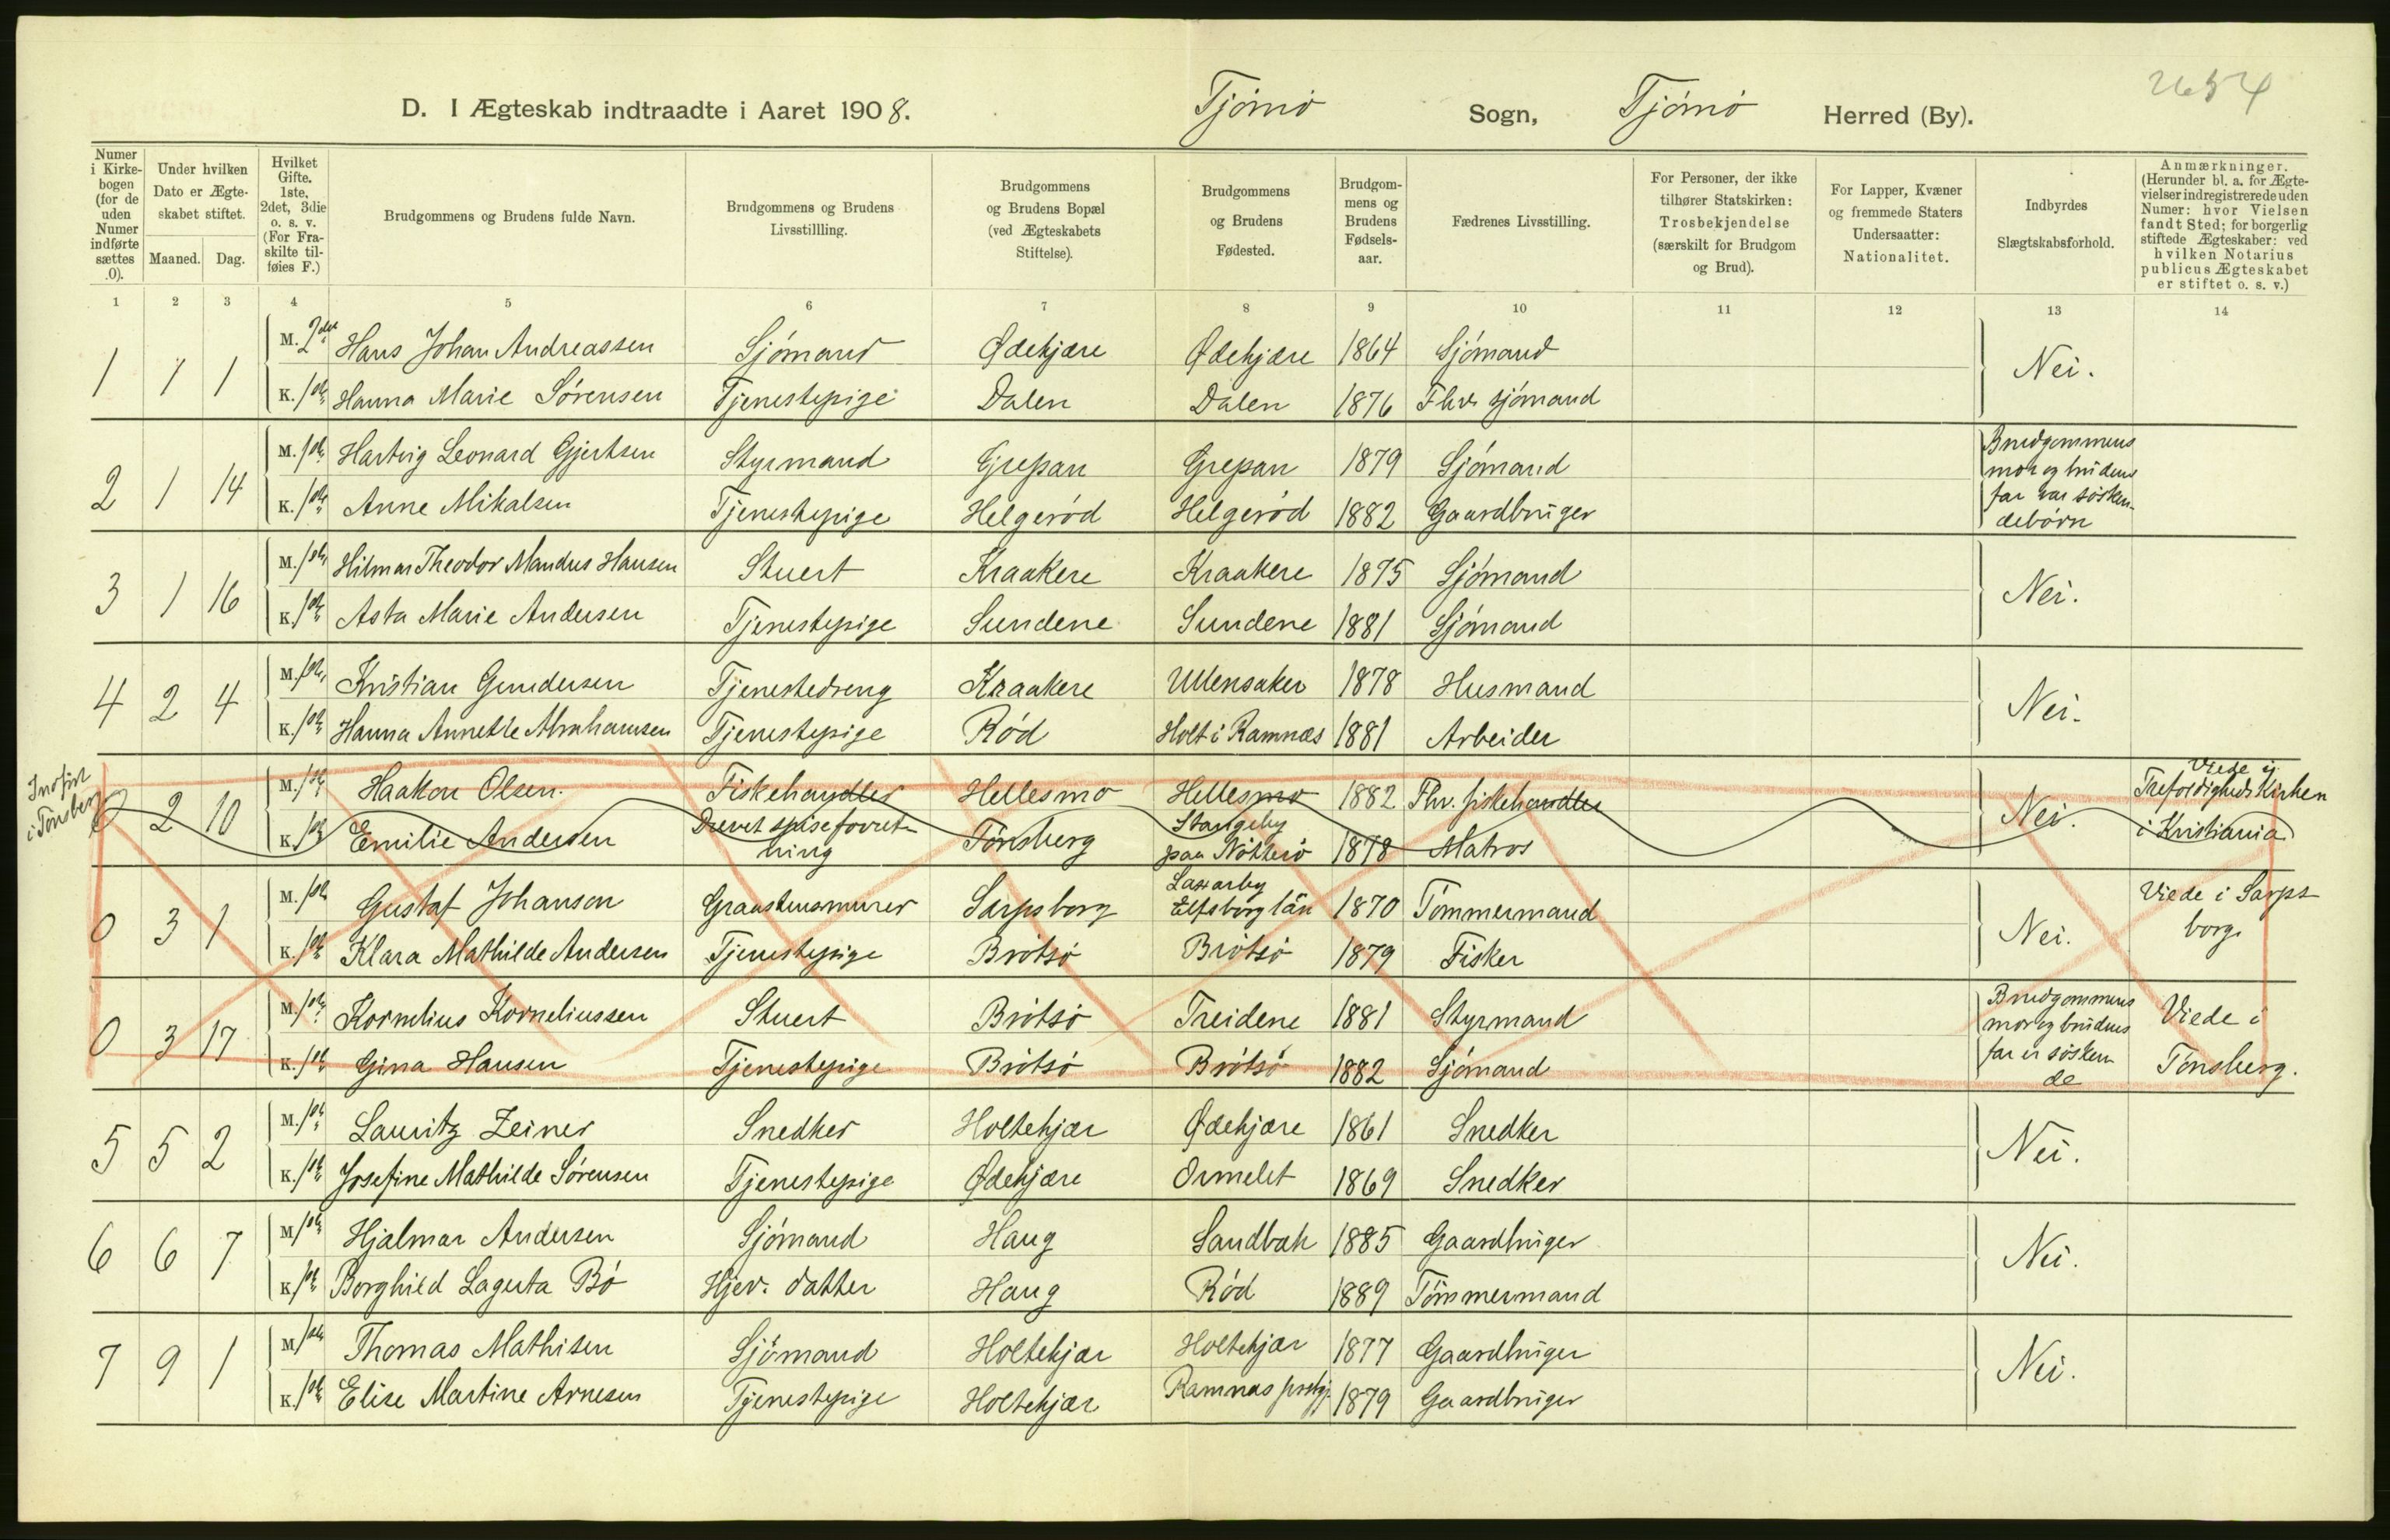 2654
D. I Ægteskab indtraadte i Aaret 1908. Tjömö Sogn, Tjömö Herred (By).
Numer i Kirkebogen (for de uden Numer indførte sættes .0).
Under hvilken Dato er Ægteskabet stiftet.
Maaned. Dag.
Hvilket Gifte. 1ste, 2det, 3die o. s. v. (For Fraskilte tilføies F.)
Brudgommens og Brudens fulde Navn.
Brudgommens og Brudens Livsstillling.
Brudgommens og Brudens Bopæl (ved Ægteskabets Stiftelse).
Brudgommens og Brudens Fødested.
Brudgommens og Brudens Fødselsaar.
Fædrenes Livsstilling.
For Personer, der ikke tilhører Statskirken: Trosbekjendelse (særskilt for Brudgom og Brud).
For Lapper, Kvæner og fremmede Staters Undersaatter: Nationalitet.
Indbyrdes Slægtskabsforhold.
Anmærkninger. (Herunder bl. a. for Ægtevielser indregistrerede uden Numer: hvor Vielsen fandt Sted; for borgerlig stiftede Ægteskaber: ved hvilken Notarius publicus Ægteskabet er stiftet o. s. v.)
1 2 3 4 5 6 7 8 9 10 11 12 13 14
1 1 1 M. 2det Hans Johan Andreassen Sjömand Ødekjære Ødekjære 1864 Sjömand Nei.
K. 1ste Hanna Marie Sörensen Tjenestepige Dalen Dalen 1876 Fhv. sjömand
2 1 14 M. 1ste Hartvig Leonard Gjertsen Styrmand Grepan Grepan 1879 Sjömand Brudgommens mor og brudens far var söskendebörn
K. 1ste Anne Mikalsen Tjenestepige Helgeröd Helgeröd 1882 Gaardbruger
3 1 16 M. 1ste Hilmar Theodor Mandus Hansen Stuert Kraakere Kraakere 1875 Sjömand Nei.
K. 1ste Asta Marie Andersen Tjenestepige Sundene Sundene 1881 Sjömand
4 2 4 M. 1ste Kristian Gundersen Tjenestedreng Kraakere Ullensaker 1878 Husmand Nei.
K. 1ste Hanna Annette Abrahamsen Tjenestepige Röd Holt i Ramnæs 1881 Arbeider
Indfört i Tönsberg
0 2 10 M. 1ste Haakon Olsen. Fiskehandler Hellesmo Hellesmo 1882 Fhv. fiskehandler Nei. Viede i Trefoldigheds Kirken i Kristiania
K. 1ste Emilie Andersen Drevet spiseforretning Tönsberg Stangeby paa Nötterö 1878 Matros
0 3 1 M. 1ste Gustaf Johanson Graastensmurer Sarpsborg Laxarby Elfsborg län 1870 Tömmermand Nei. Viede i Sarpsborg.
K. 1ste Klara Mathilde Andersen Tjenestepige Brötsö Brötsö 1879 Fisker
0 3 17 M. 1ste Kornelius Korneliussen Stuert Brötsö Treidene 1881 Styrmand Brudgommens mor og brudens far er söskende Viede i Tönsberg.
K. 1ste Gina Hansen Tjenestepige Brötsö Brötsö 1882 Sjömand
5 5 2 M. 1ste Lauritz Zeiner Snedker Holtekjær Ødekjære 1861 Snedker Nei.
K. 1ste Josefine Mathilde Sörensen Tjenestepige Ødekjære Ormelet 1869 Snedker
6 6 7 M. 1ste Hjalmar Andersen Sjömand Haug Sandbæk 1885 Gaardbruger Nei.
K. 1ste Borghild Lagerta Bö Hjev. datter Haug Röd 1889 Tömmermand
7 9 1 M. 1ste Thomas Mathisen Sjömand Holtekjær Holtekjær 1877 Gaardbruger Nei.
K. 1ste Elise Martine Arnesen Tjenestepige Holtekjær Ramnæs prstgj. 1879 Gaardbruger